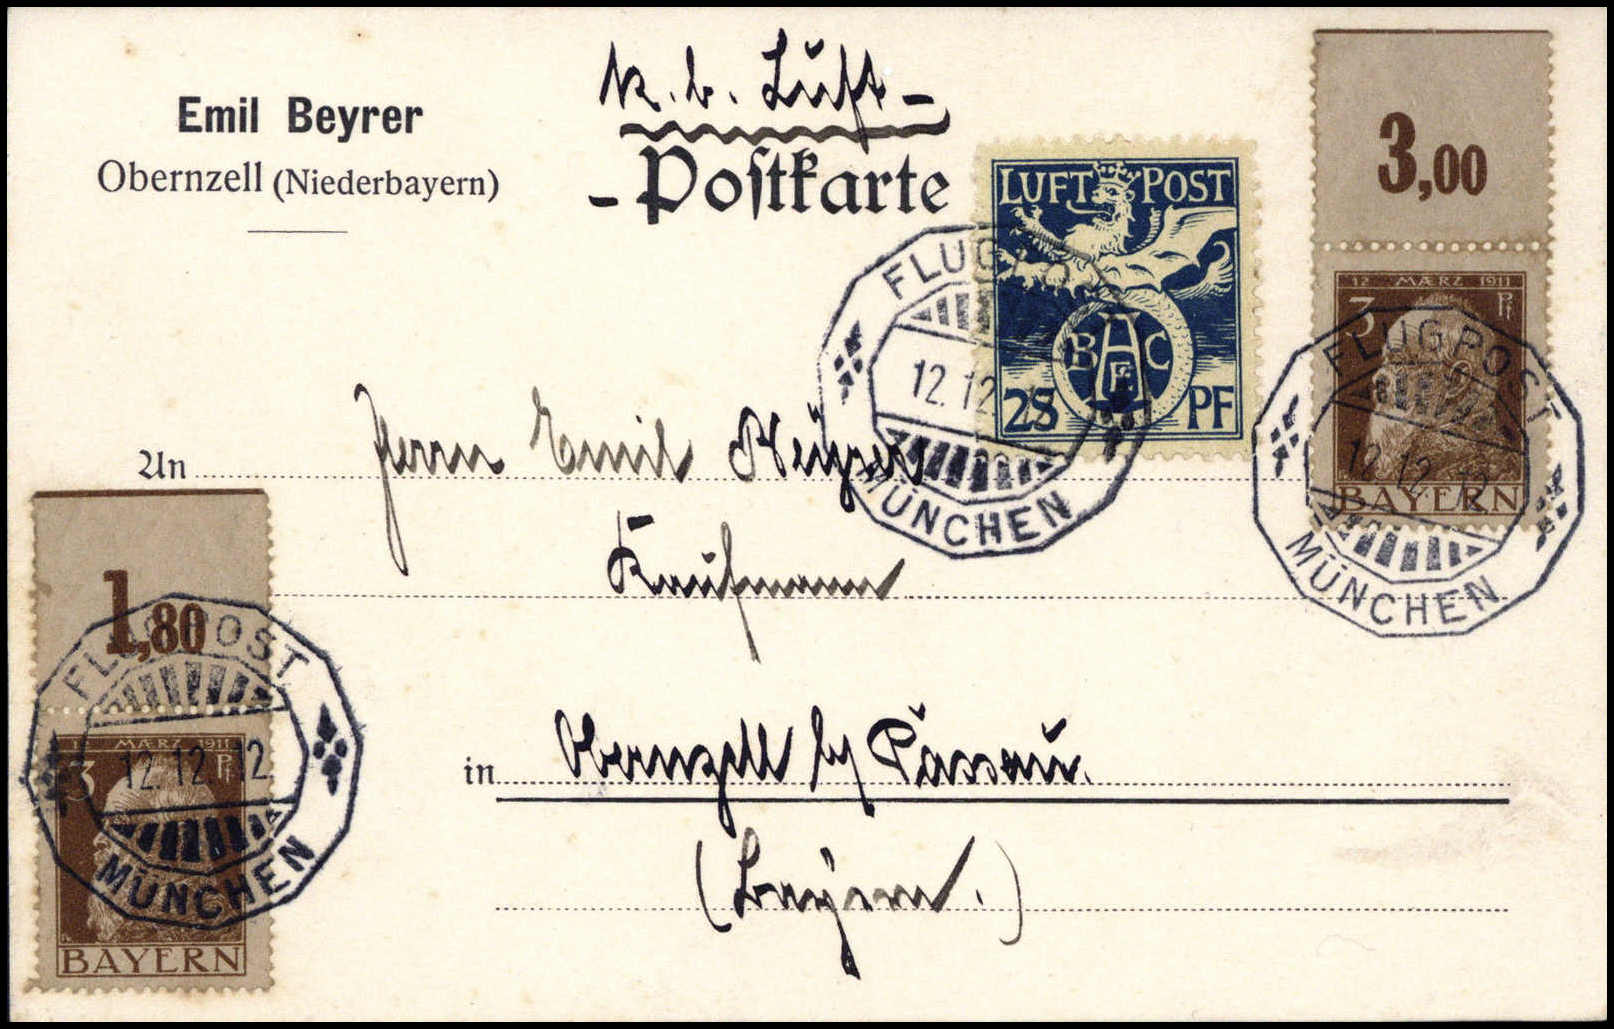 Emil Beyrer
Obernzell (Niederbayern)
k. b. Luft-
-Postkarte
LUFT POST
B A C
F.
25 PF
FLUGPOST
12.12.12
MÜNCHEN
3,00
12 MÆRZ 1911
3 Pf
BAYERN
FLUGPOST
12.12.12
MÜNCHEN
An Herrn Emil Beyrer
Kaufmann
in Obernzell b/ Passau.
(Bayern.)
1,80
FLUGPOST
12 MÆRZ 1911
3 Pf
12.12.12
MÜNCHEN
BAYERN